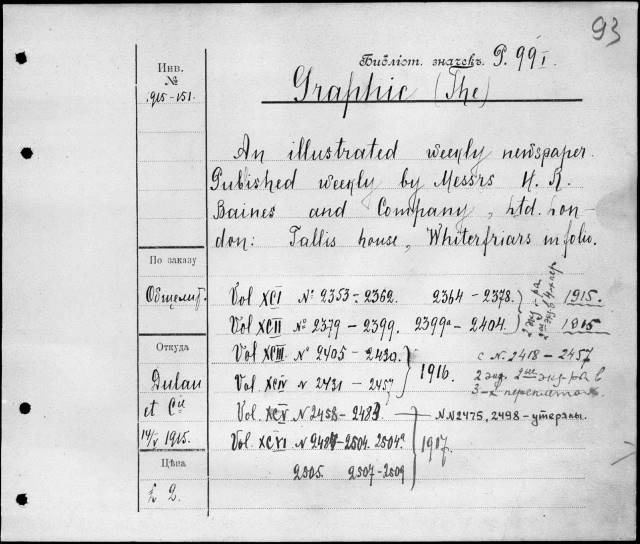 93
Библіот. значекъ P. 99 I.
Graphic (The)
Инв.
№
1915-151.
An illustrated weekly newspaper.
Published weekly by Messrs H. R.
Baines and Company, Ltd. Lon-
don: Tallis house, Whiterfriars in folio.
По заказу
Общелит.
Откуда
Dulau
et Cie
14/V 1915.
Цѣна
£ 2.
Vol XCI № 2353-2362. 2364-2378. 1915.
Vol XCII № 2379-2399. 2399a-2404. 1915
Vol XCIII № 2405-2430.
Vol. XCIV № 2431-2457 1916.
с № 2418-2457
2 экз. 2ые экз-ра в
3-х переплетах
Vol. XCV № 2458-2483 — NN 2475, 2498-утеряны.
Vol. XCVI № 2484-2504. 2504a
2505. 2507-2509 1917.